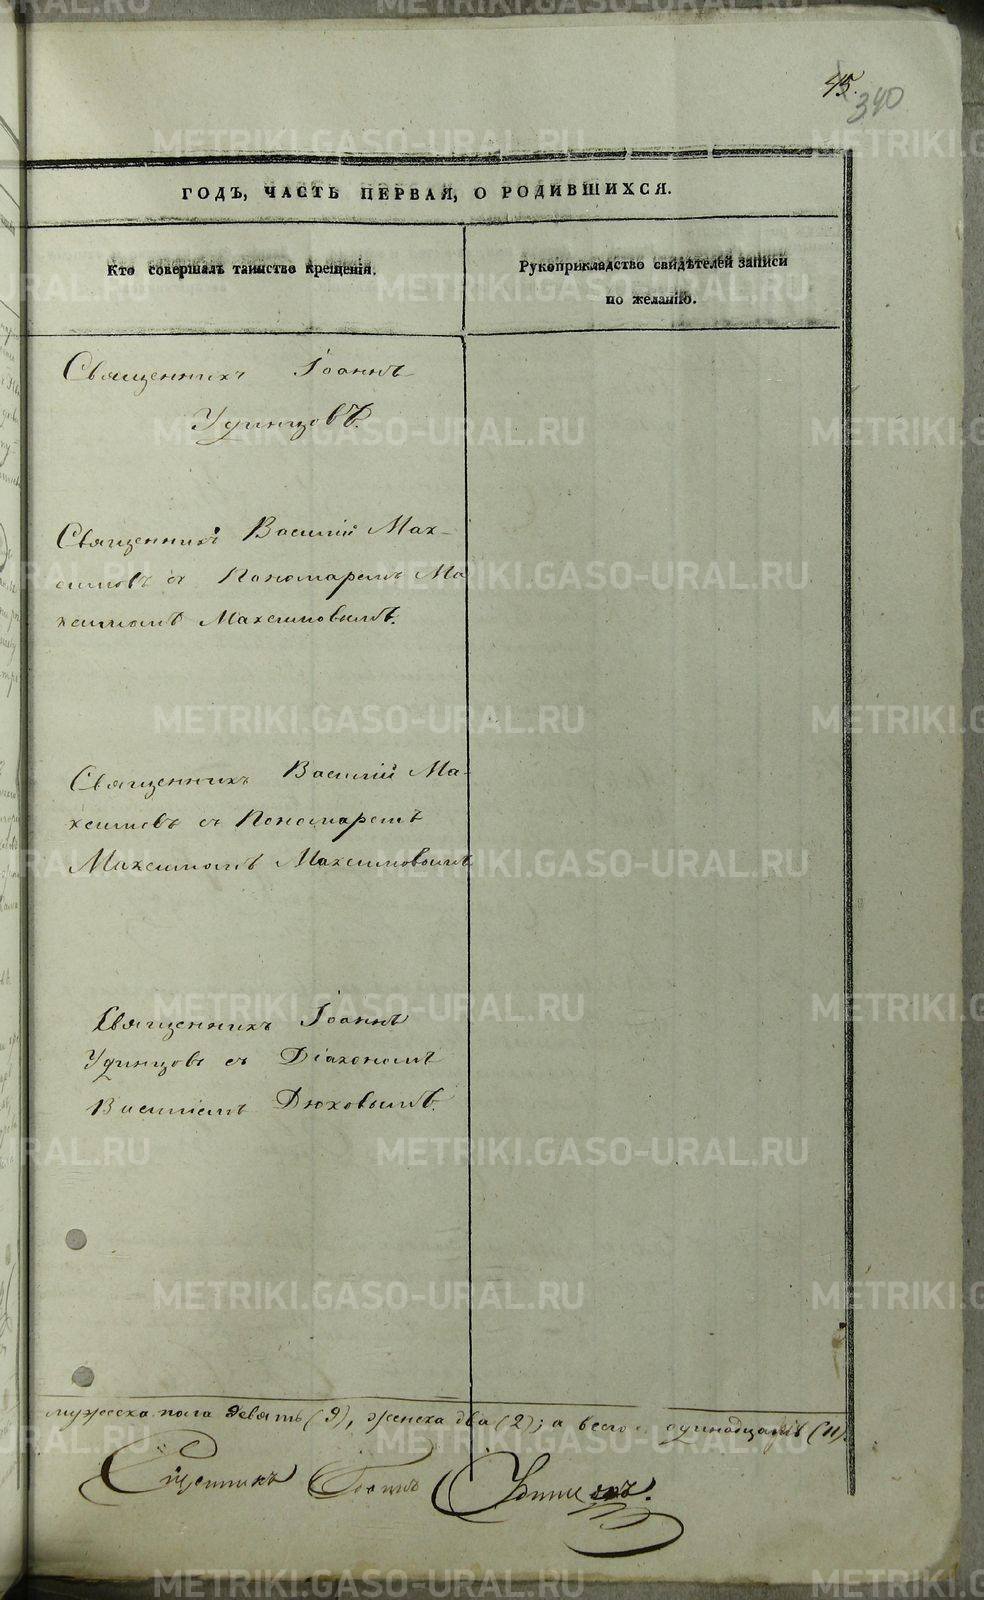 45.
340
ГОДЪ, ЧАСТЬ ПЕРВАЯ, О РОДИВШИХСЯ.
Кто совершалъ таинство крещенія.
Рукоприкладство свидѣтелей записи
по желанію.
Священникъ Іоаннъ
Удинцовъ.
Священникъ Василій Мак-
симовъ съ Пономаремъ Ма
ксимомъ Максимовымъ.
Священникъ Василій Ма-
ксимовъ съ Пономаремъ
Максимомъ Максимовымъ
Священникъ Іоаннъ
Удинцовъ съ Діакономъ
Василіемъ Дюковымъ.
мужеска пола девять (9), женска два (2); а всего одинадцать (11).
Сщенникъ Іоаннъ Удинцовъ.
METRIKI.GASO-URAL.RU